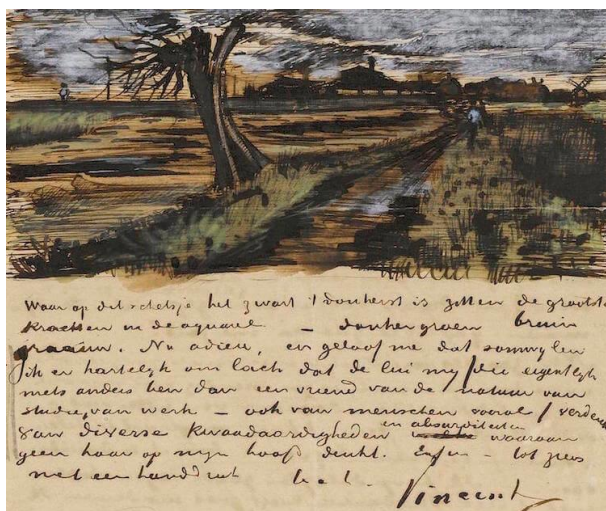 Waar op dit schetsje het zwart 't donkerst is zitten de grootste
krachten in de aquarel – donkergroen bruin
graauw. Nu adieu, en geloof me dat somwylen
ik er hartelyk om lach dat de lui my / die eigentlyk
niets anders ben dan een vriend van de natuur van
studie van werk – ook van menschen vooral / verdenken
van diverse kwaadaardigheden en absurditeiten waaraan
geen haar op myn hoofd denkt. Enfin – tot ziens
met een handdruk
Vincent